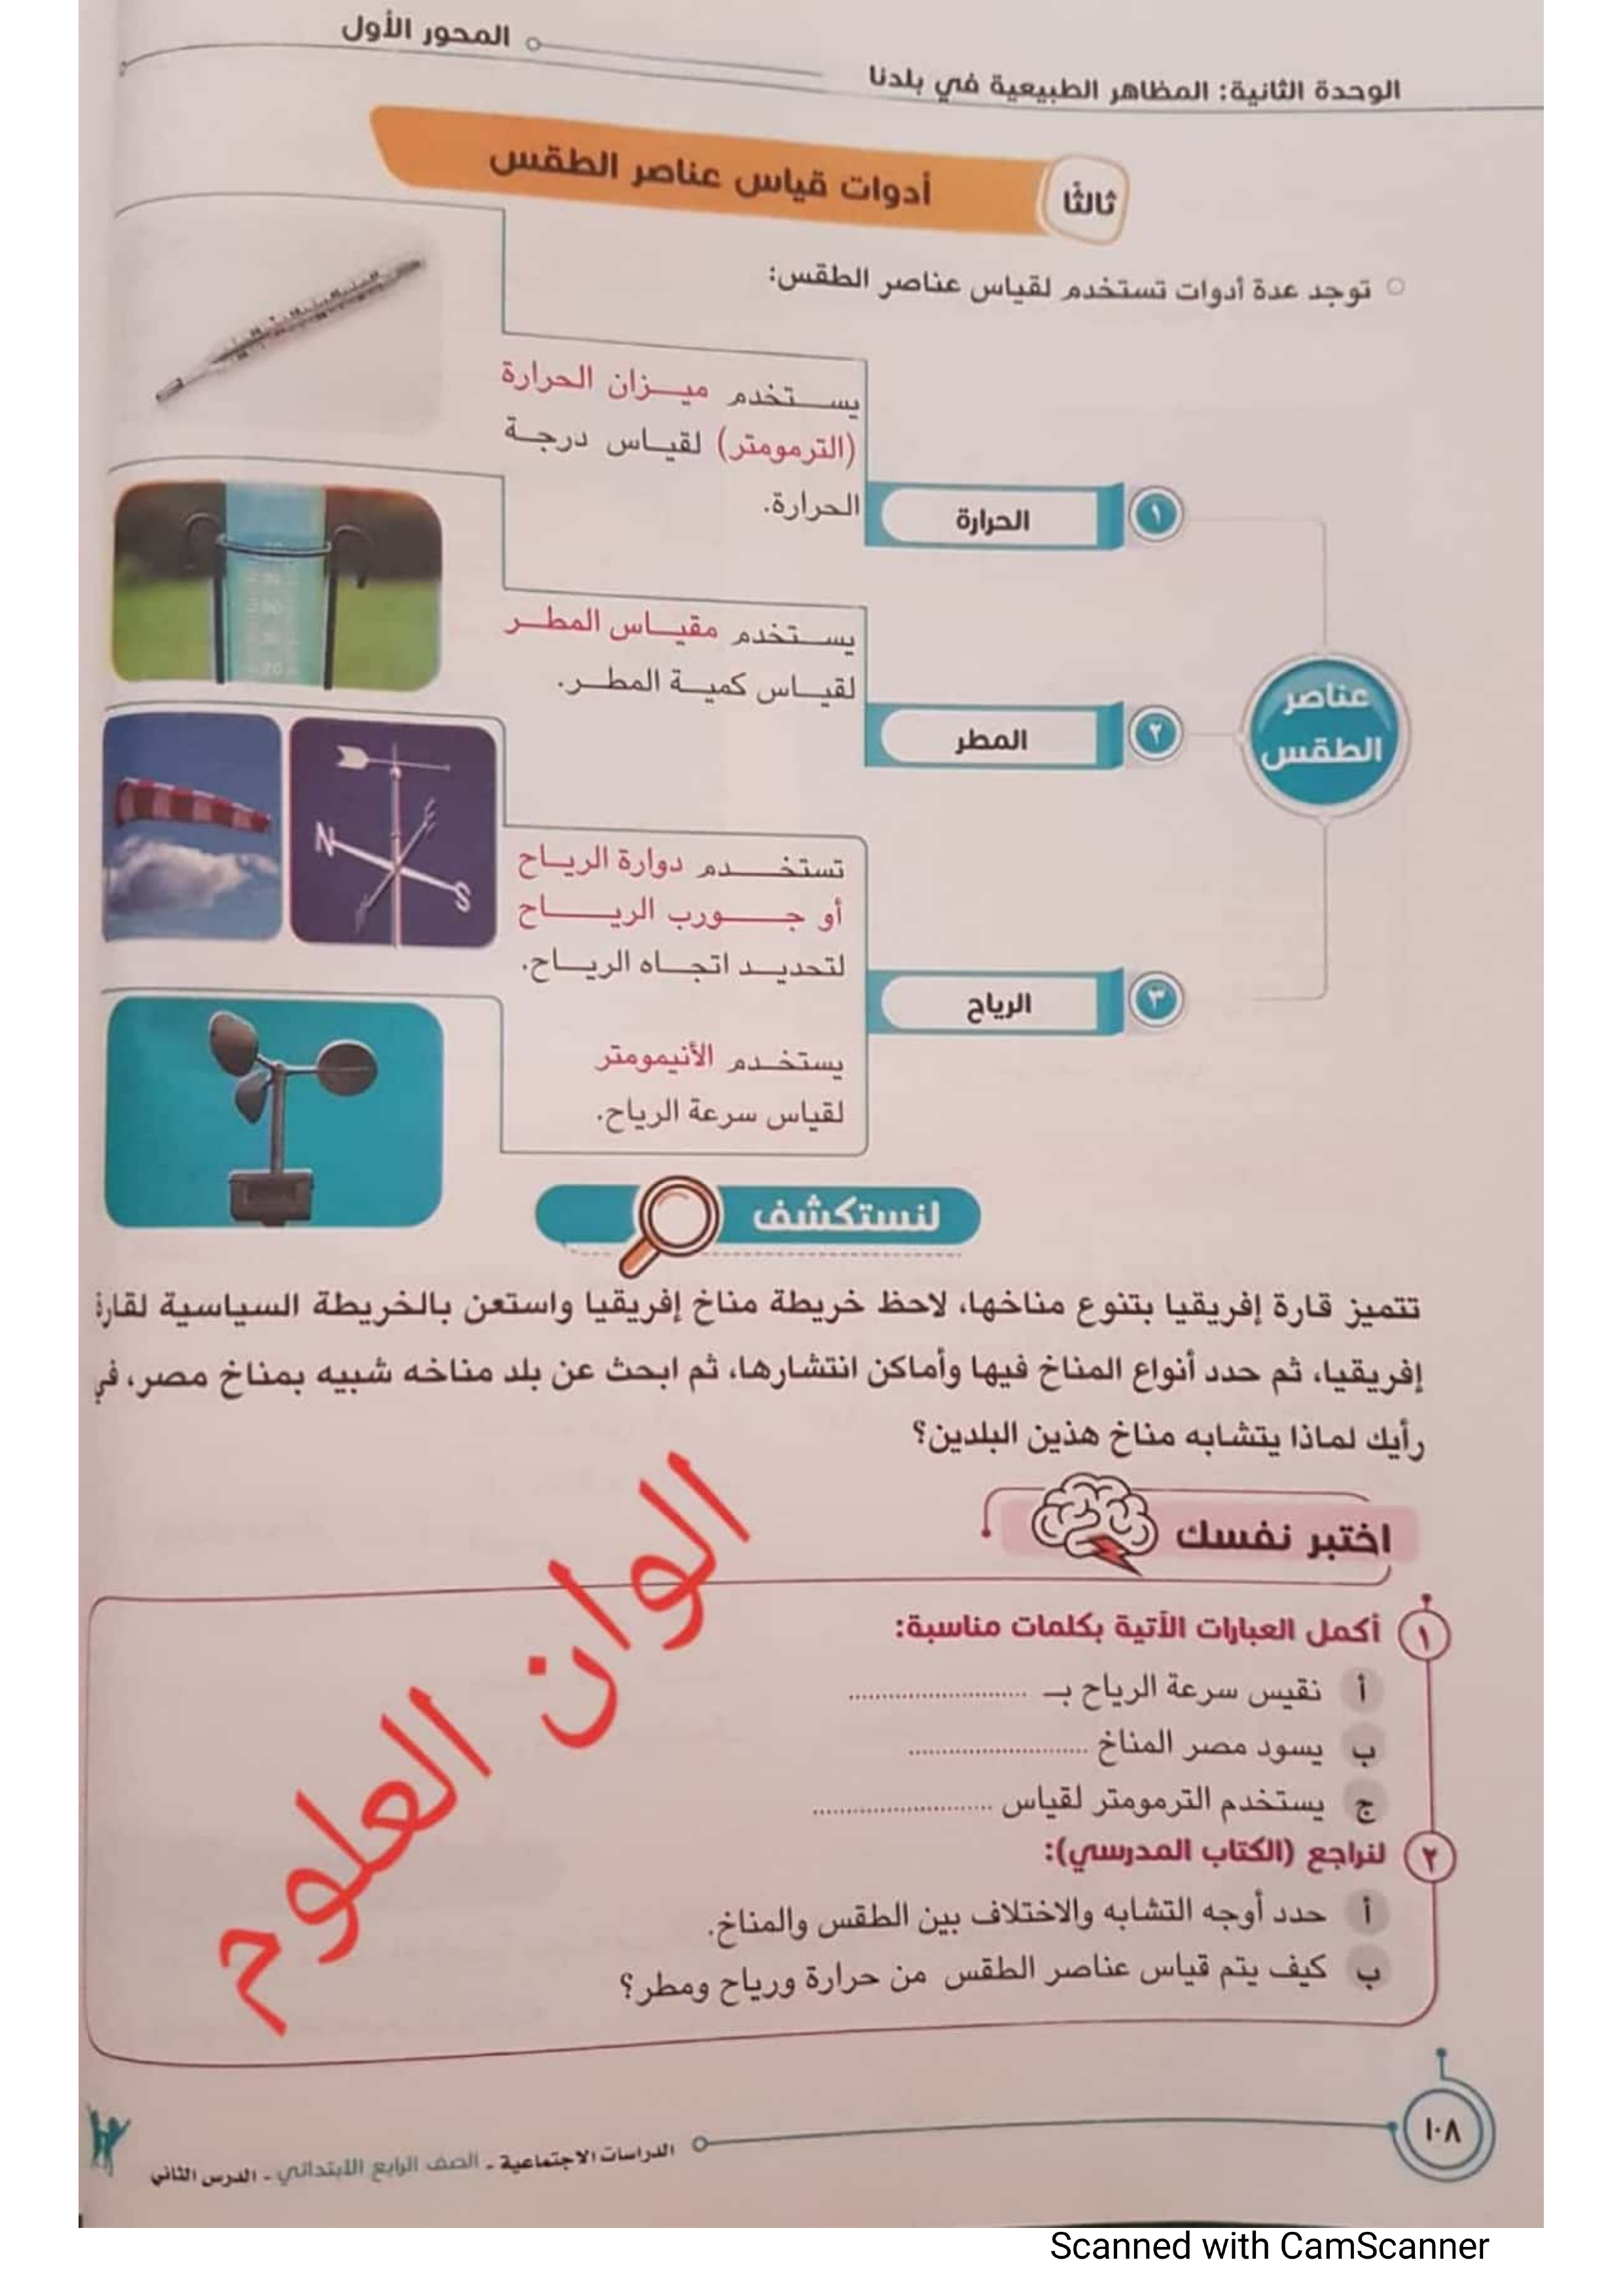 المحور الأول
الوحدة الثانية: المظاهر الطبيعية في بلدنا
ثالثًا
أدوات قياس عناصر الطقس
توجد عدة أدوات تستخدم لقياس عناصر الطقس:
عناصر
الطقس
١
الحرارة
يستخدم ميزان الحرارة
(الترمومتر) لقياس درجة
الحرارة.
٢
المطر
يستخدم مقياس المطر
لقياس كمية المطر.
٣
الرياح
تستخدم دوارة الرياح
أو جورب الرياح
لتحديد اتجاه الرياح.
يستخدم الأنيمومتر
لقياس سرعة الرياح.
N
S
لنستكشف
تتميز قارة إفريقيا بتنوع مناخها، لاحظ خريطة مناخ إفريقيا واستعن بالخريطة السياسية لقارة
إفريقيا، ثم حدد أنواع المناخ فيها وأماكن انتشارها، ثم ابحث عن بلد مناخه شبيه بمناخ مصر، في
رأيك لماذا يتشابه مناخ هذين البلدين؟
اختبر نفسك
١ أكمل العبارات الآتية بكلمات مناسبة:
أ نقيس سرعة الرياح بـ ..........................
ب يسود مصر المناخ ..........................
ج يستخدم الترمومتر لقياس ..........................
٢ لنراجع (الكتاب المدرسي):
أ حدد أوجه التشابه والاختلاف بين الطقس والمناخ.
ب كيف يتم قياس عناصر الطقس من حرارة ورياح ومطر؟
الوان العلوم
١٠٨
الدراسات الاجتماعية - الصف الرابع الابتدائي - الدرس الثاني
Scanned with CamScanner